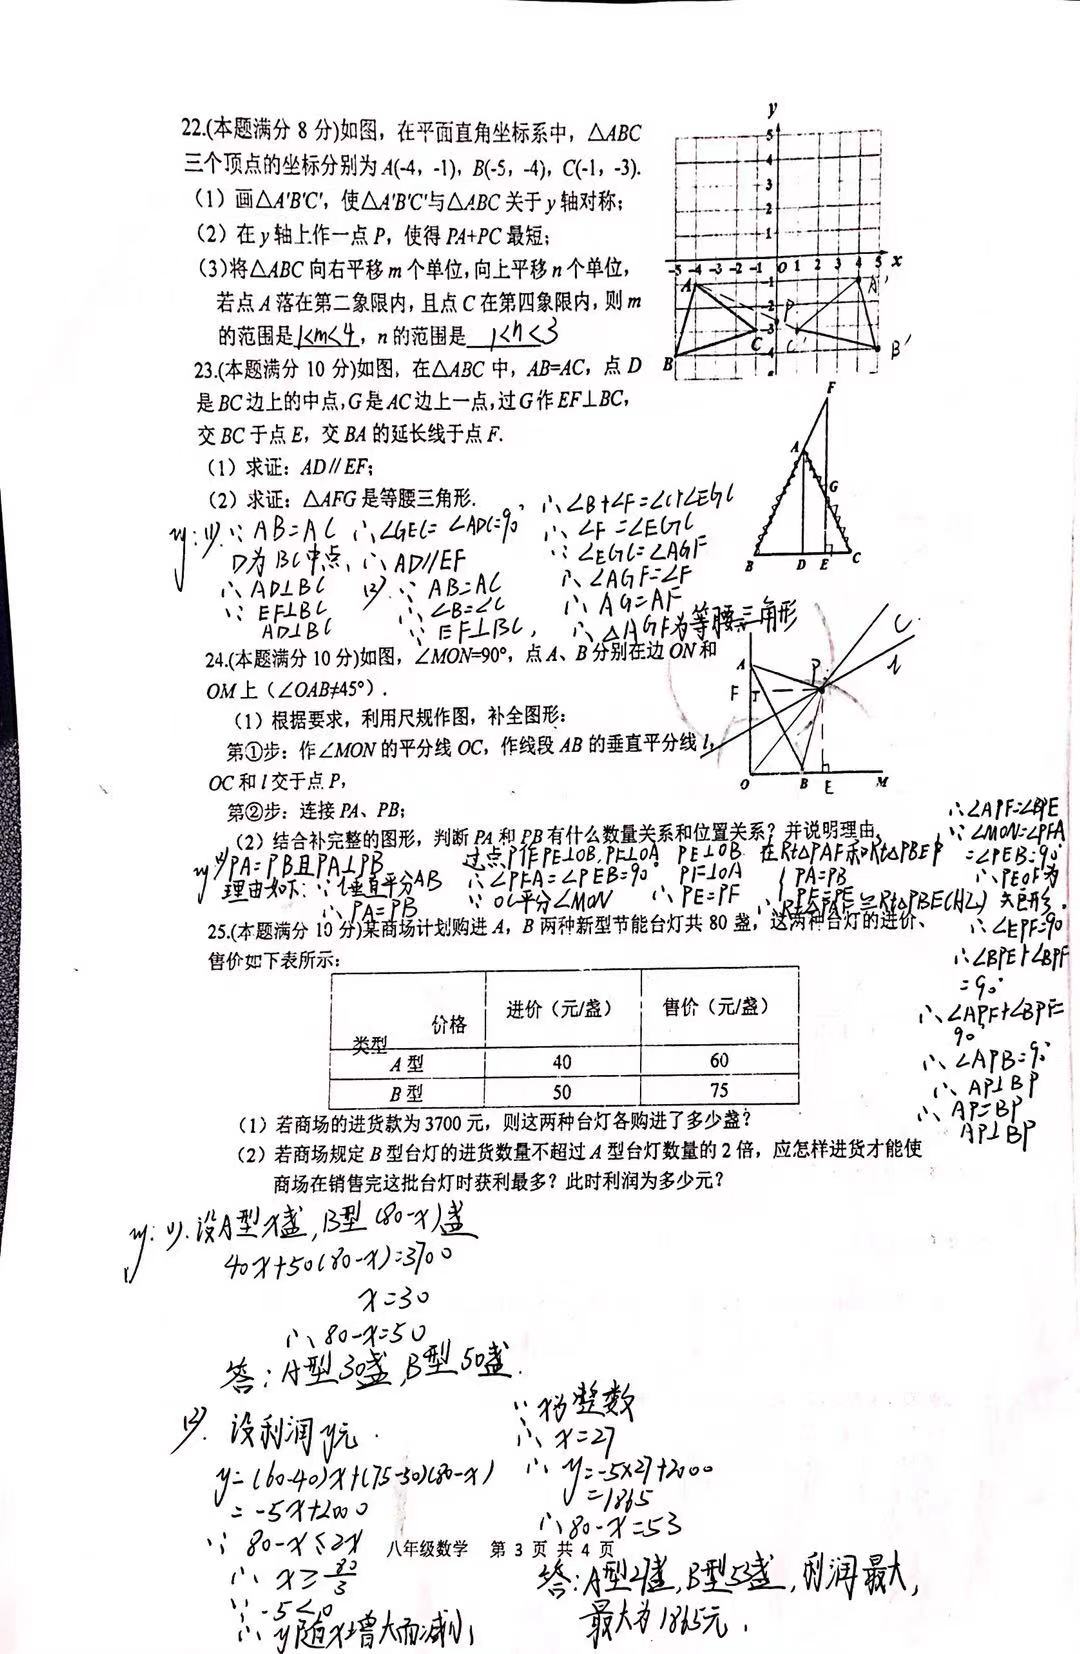 22.(本题满分 8 分)如图，在平面直角坐标系中，△ABC
三个顶点的坐标分别为 A(-4，-1)，B(-5，-4)，C(-1，-3).
（1）画△A'B'C'，使△A'B'C'与△ABC 关于 y 轴对称；
（2）在 y 轴上作一点 P，使得 PA+PC 最短；
（3)将△ABC 向右平移 m 个单位，向上平移 n 个单位，
若点 A 落在第二象限内，且点 C 在第四象限内，则 m
的范围是 1<m<4，n 的范围是 1<n<3
y
5
4
3
2
1
-5 -4 -3 -2 -1 O 1 2 3 4 5 x
-1
-2
-3
-4
A
B
C
P
A'
C'
B'
23.(本题满分 10 分)如图，在△ABC 中，AB=AC，点 D
是 BC 边上的中点，G 是 AC 边上一点，过 G 作 EF⊥BC，
交 BC 于点 E，交 BA 的延长线于点 F.
（1）求证：AD∥EF；
（2）求证：△AFG 是等腰三角形.
F
A
G
B D E C
(1).∵AB=AC
D为BC中点
∴AD⊥BC
∵EF⊥BC
AD⊥BC
∴∠GEC=∠ADC=90°
∴AD//EF
(2).∵AB=AC
∴∠B=∠C
∵EF⊥BC，
∴∠B+∠F=∠C+∠EGC
∴∠F=∠EGC
∵∠EGC=∠AGF
∴∠AGF=∠F
∴AG=AF
∴△AGF为等腰三角形
24.(本题满分 10 分)如图，∠MON=90°，点 A、B 分别在边 ON 和
OM 上（∠OAB≠45°）.
（1）根据要求，利用尺规作图，补全图形：
第①步：作∠MON 的平分线 OC，作线段 AB 的垂直平分线 l，
OC 和 l 交于点 P，
第②步：连接 PA、PB；
（2）结合补完整的图形，判断 PA 和 PB 有什么数量关系和位置关系？并说明理由.
A
F
P
C
l
O B E M
(2)PA=PB且PA⊥PB
理由如下：∵l垂直平分AB
∴PA=PB
过点P作PE⊥OB，PF⊥OA
∴∠PFA=∠PEB=90°
∵OC平分∠MON
PE⊥OB
PF⊥OA
∴PE=PF
在Rt△PAF和Rt△PBE中
PA=PB
PF=PE
∴Rt△PAF≌Rt△PBE(HL)
∴∠APF=∠BPE
∵∠MON=∠PFA
=∠PEB=90°
∴PEOF为
矩形.
∴∠EPF=90°
∴∠BPE+∠BPF
=90°
∴∠APF+∠BPF=
90°
∴∠APB=90°
∴AP⊥BP
∴AP=BP
AP⊥BP
25.(本题满分 10 分)某商场计划购进 A，B 两种新型节能台灯共 80 盏，这两种台灯的进价、
售价如下表所示：
价格
类型
进价（元/盏） 售价（元/盏）
A 型 40 60
B 型 50 75
（1）若商场的进货款为 3700 元，则这两种台灯各购进了多少盏？
（2）若商场规定 B 型台灯的进货数量不超过 A 型台灯数量的 2 倍，应怎样进货才能使
商场在销售完这批台灯时获利最多？此时利润为多少元？
(1).设A型x盏，B型(80-x)盏
40x+50(80-x)=3700
x=30
∴80-x=50
答：A型30盏，B型50盏.
(2).设利润y元.
y=(60-40)x+(75-50)(80-x)
=-5x+2000
∵80-x≤2x
∴x≥80/3
∵-5<0
∴y随x增大而减小
∵x为整数
∴x=27
∴y=-5×27+2000
=1865
∴80-x=53
答：A型27盏，B型53盏，利润最大，
最大为1865元.
八年级数学 第 3 页 共 4 页